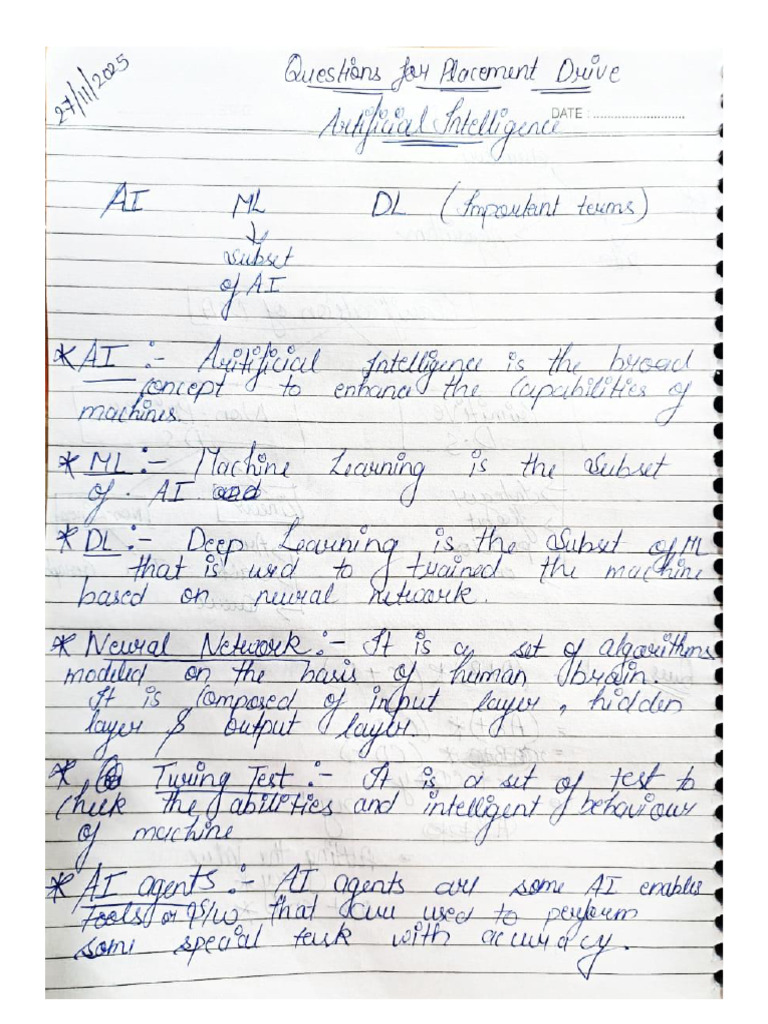 27/11/2025
Questions for Placement Drive
DATE : ............................
Artificial Intelligence
AI ML DL (Important terms)
Subset
of AI
* AI :- Aritificial Intelligence is the broad
concept to enhance the capabilities of
machines.
* ML :- Machine Learning is the Subset
of AI
* DL :- Deep Learning is the Subset of ML
that is used to trained the machine
based on neural network.
* Neural Network :- It is a set of algorithms
modeled on the basis of human brain.
It is composed of input layer, hidden
layer & output layer.
* Turing Test :- It is a set of test to
check the abilities and intelligent behaviour
of machine
* AI agents :- AI agents are some AI enables
Tools or S/W that are used to perform
some special task with accuracy.